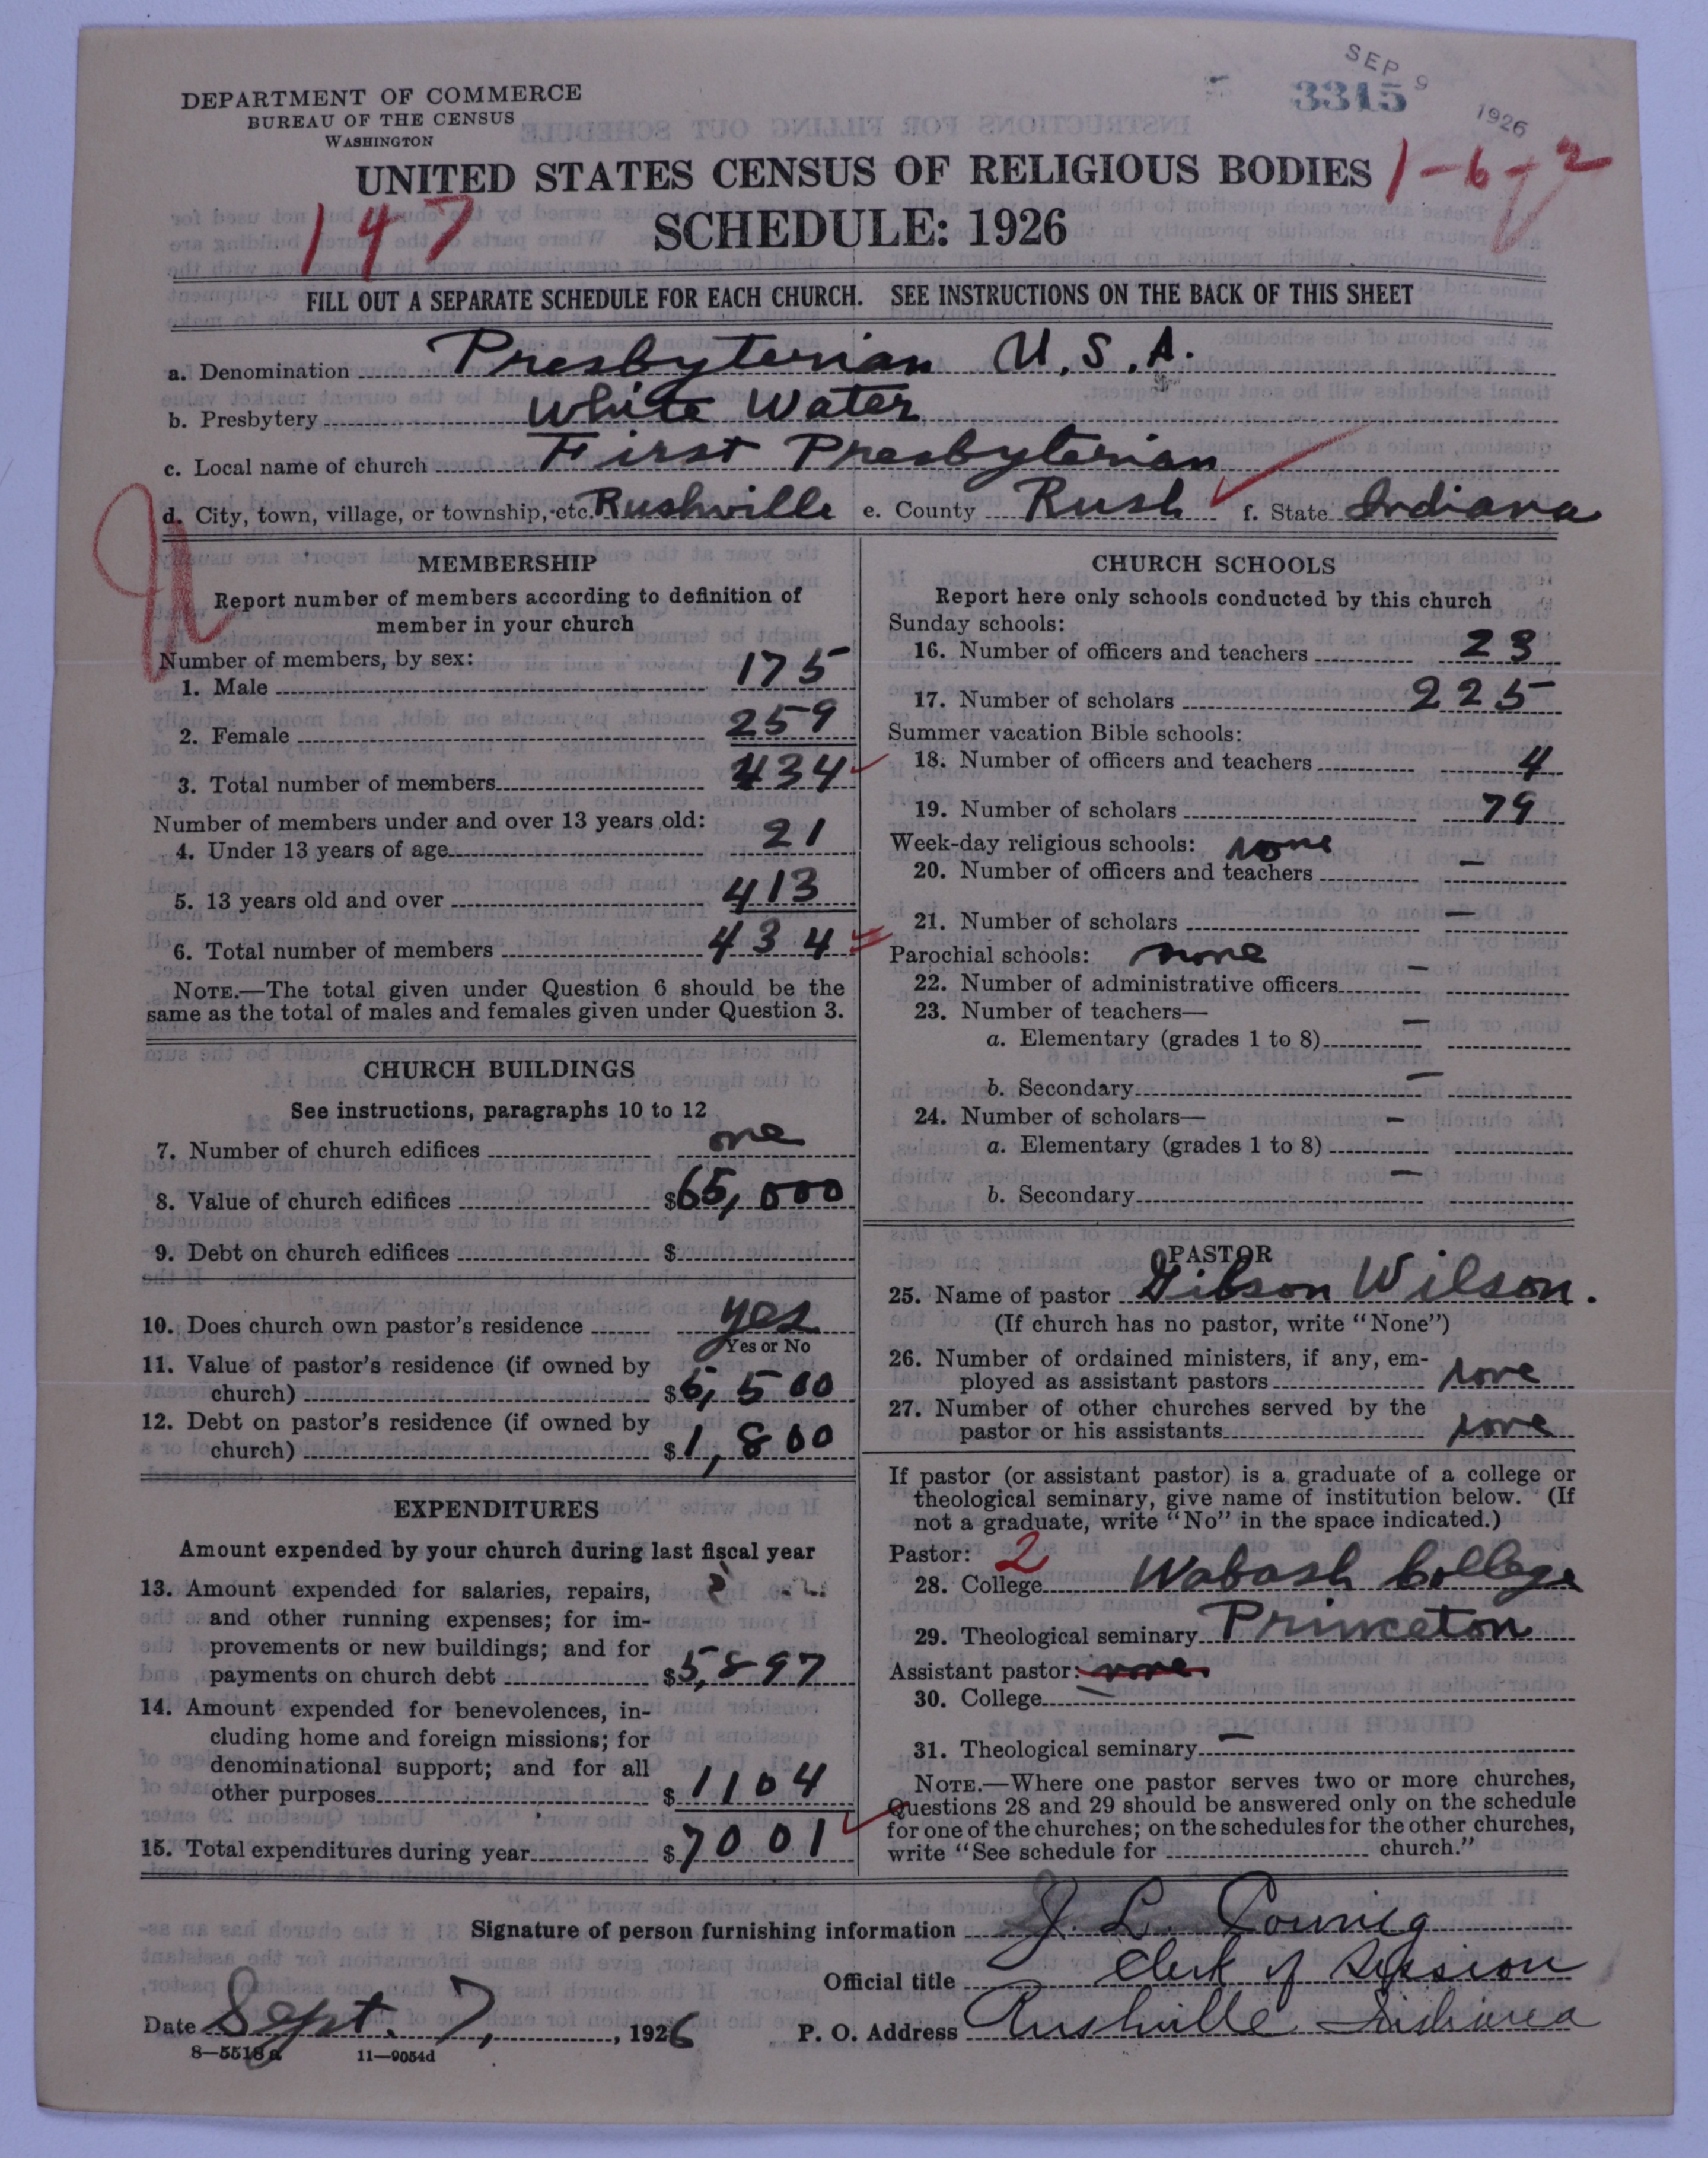 SEP 9 1926
3315
DEPARTMENT OF COMMERCE
BUREAU OF THE CENSUS
WASHINGTON
UNITED STATES CENSUS OF RELIGIOUS BODIES
1-6-2
147
SCHEDULE: 1926
FILL OUT A SEPARATE SCHEDULE FOR EACH CHURCH. SEE INSTRUCTIONS ON THE BACK OF THIS SHEET
a. Denomination Presbyterian U.S.A.
b. Presbytery White Water
c. Local name of church First Presbyterian
d. City, town, village, or township, etc. Rushville e. County Rush f. State Indiana
MEMBERSHIP
Report number of members according to definition of
member in your church
Number of members, by sex:
1. Male 175
2. Female 259
3. Total number of members 434
Number of members under and over 13 years old:
4. Under 13 years of age 21
5. 13 years old and over 413
6. Total number of members 434
NOTE.—The total given under Question 6 should be the
same as the total of males and females given under Question 3.
CHURCH BUILDINGS
See instructions, paragraphs 10 to 12
7. Number of church edifices one
8. Value of church edifices $65,000
9. Debt on church edifices $
10. Does church own pastor's residence yes
Yes or No
11. Value of pastor's residence (if owned by
church) $6,500
12. Debt on pastor's residence (if owned by
church) $1,800
EXPENDITURES
Amount expended by your church during last fiscal year
13. Amount expended for salaries, repairs,
and other running expenses; for im-
provements or new buildings; and for
payments on church debt $5,897
14. Amount expended for benevolences, in-
cluding home and foreign missions; for
denominational support; and for all
other purposes $1104
15. Total expenditures during year $7001
CHURCH SCHOOLS
Report here only schools conducted by this church
Sunday schools:
16. Number of officers and teachers 23
17. Number of scholars 225
Summer vacation Bible schools:
18. Number of officers and teachers 4
19. Number of scholars 79
Week-day religious schools: none
20. Number of officers and teachers —
21. Number of scholars —
Parochial schools: none
22. Number of administrative officers —
23. Number of teachers—
a. Elementary (grades 1 to 8) —
b. Secondary —
24. Number of scholars—
a. Elementary (grades 1 to 8) —
b. Secondary —
PASTOR
25. Name of pastor Gibson Wilson.
(If church has no pastor, write "None")
26. Number of ordained ministers, if any, em-
ployed as assistant pastors none
27. Number of other churches served by the
pastor or his assistants none
If pastor (or assistant pastor) is a graduate of a college or
theological seminary, give name of institution below. (If
not a graduate, write "No" in the space indicated.)
Pastor: 2
28. College Wabash College
29. Theological seminary Princeton
Assistant pastor: none
30. College —
31. Theological seminary —
NOTE.—Where one pastor serves two or more churches,
Questions 28 and 29 should be answered only on the schedule
for one of the churches; on the schedules for the other churches,
write "See schedule for church."
Signature of person furnishing information J. L.
Official title Clerk of Session
Date Sept. 7, 1926 P. O. Address Rushville Indiana
8—5518a 11—9054d